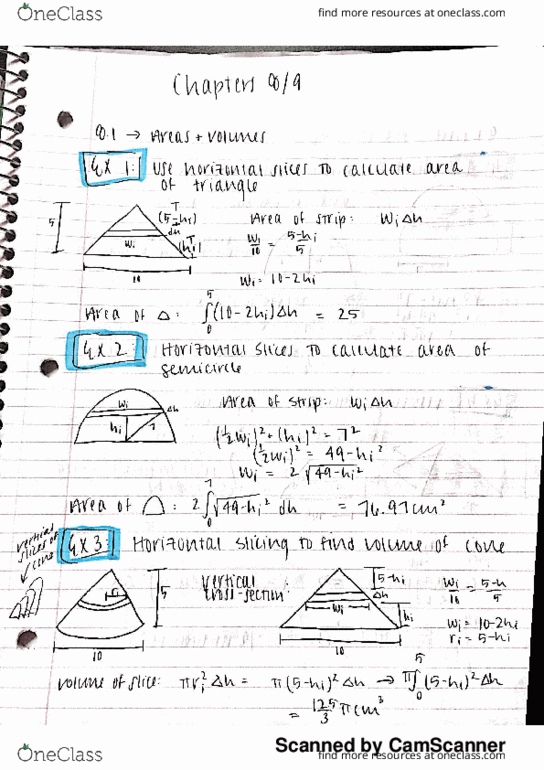 OneClass
find more resources at oneclass.com
Chapters 8/9
8.1 → Areas + volumes
EX 1: Use horizontal slices to calculate area
of triangle
5
(5-hi)
Δh
wi
(hi)
10
Area of strip: wiΔh
wi/10 = 5-hi/5
wi = 10-2hi
Area of Δ: ∫₀⁵(10-2hi)Δh = 25
EX 2: Horizontal slices to calculate area of
semicircle
wi
Δh
hi
7
Area of strip: wiΔh
(½wi)² + (hi)² = 7²
(½wi)² = 49-hi²
wi = 2√49-hi²
Area of ⌓: 2∫₀⁷√49-hi² dh = 76.97cm²
vertical
slices of
cone
EX 3: Horizontal slicing to find volume of cone
5
10
vertical
cross-section:
5-hi
Δh
wi
hi
10
wi/10 = 5-h/5
wi = 10-2hi
ri = 5-hi
volume of slice: πri²Δh = π(5-hi)²Δh → π∫₀⁵(5-hi)²Δh
= 125/3 πcm³
Scanned by CamScanner
OneClass
find more resources at oneclass.com